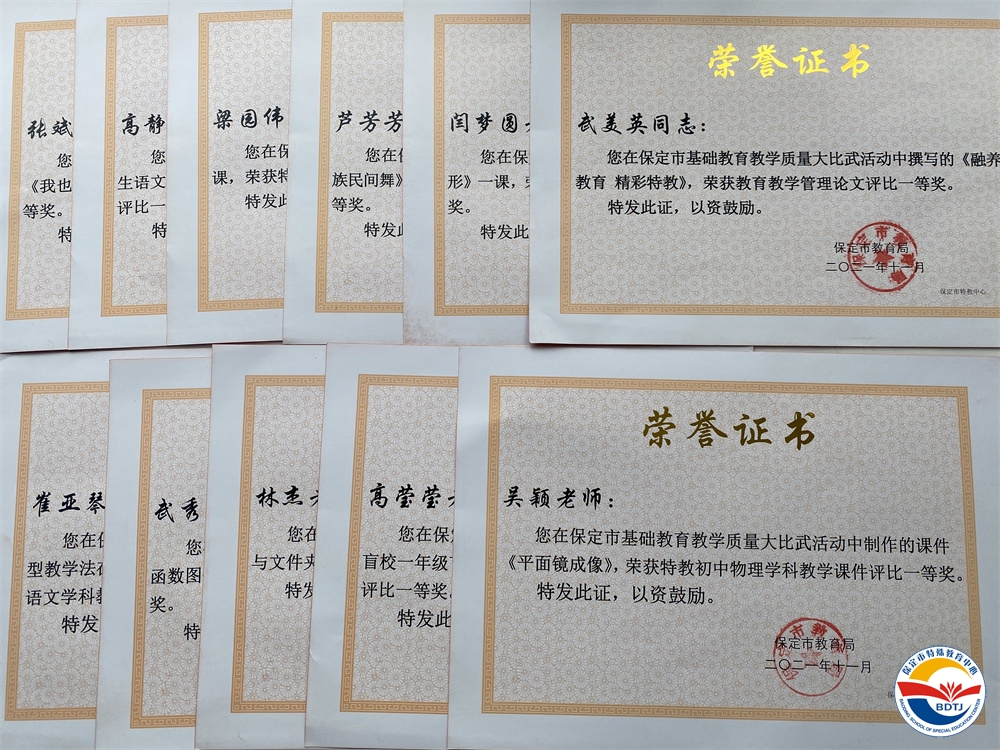 张斌
您
《我也
等奖。
特
高静
您
生语文
评比一
特
梁园伟
您在保
课，荣获特
特发此
芦芳芳
您在保
族民间舞》
等奖。
特发此
闫梦圆
您在保
形》一课，
奖。
特发此
荣誉证书
武美英同志：
您在保定市基础教育教学质量大比武活动中撰写的《融养
教育 精彩特教》，荣获教育教学管理论文评比一等奖。
特发此证，以资鼓励。
保定市教育局
二〇二一年十一月
保定市特教中心
崔亚琴
您在保
型教学法在
语文学科教
特发
武秀
您
函数图
奖。
特
林杰
您在
与文件夹
特发
高莹莹
您在保定
盲校一年级
评比一等奖。
特发此
荣誉证书
吴颖老师：
您在保定市基础教育教学质量大比武活动中制作的课件
《平面镜成像》，荣获特教初中物理学科教学课件评比一等奖。
特发此证，以资鼓励。
保定市教育局
二〇二一年十一月
保定市特殊教育中心
BDTJ
BAODING SCHOOL OF SPECIAL EDUCATION CENTER